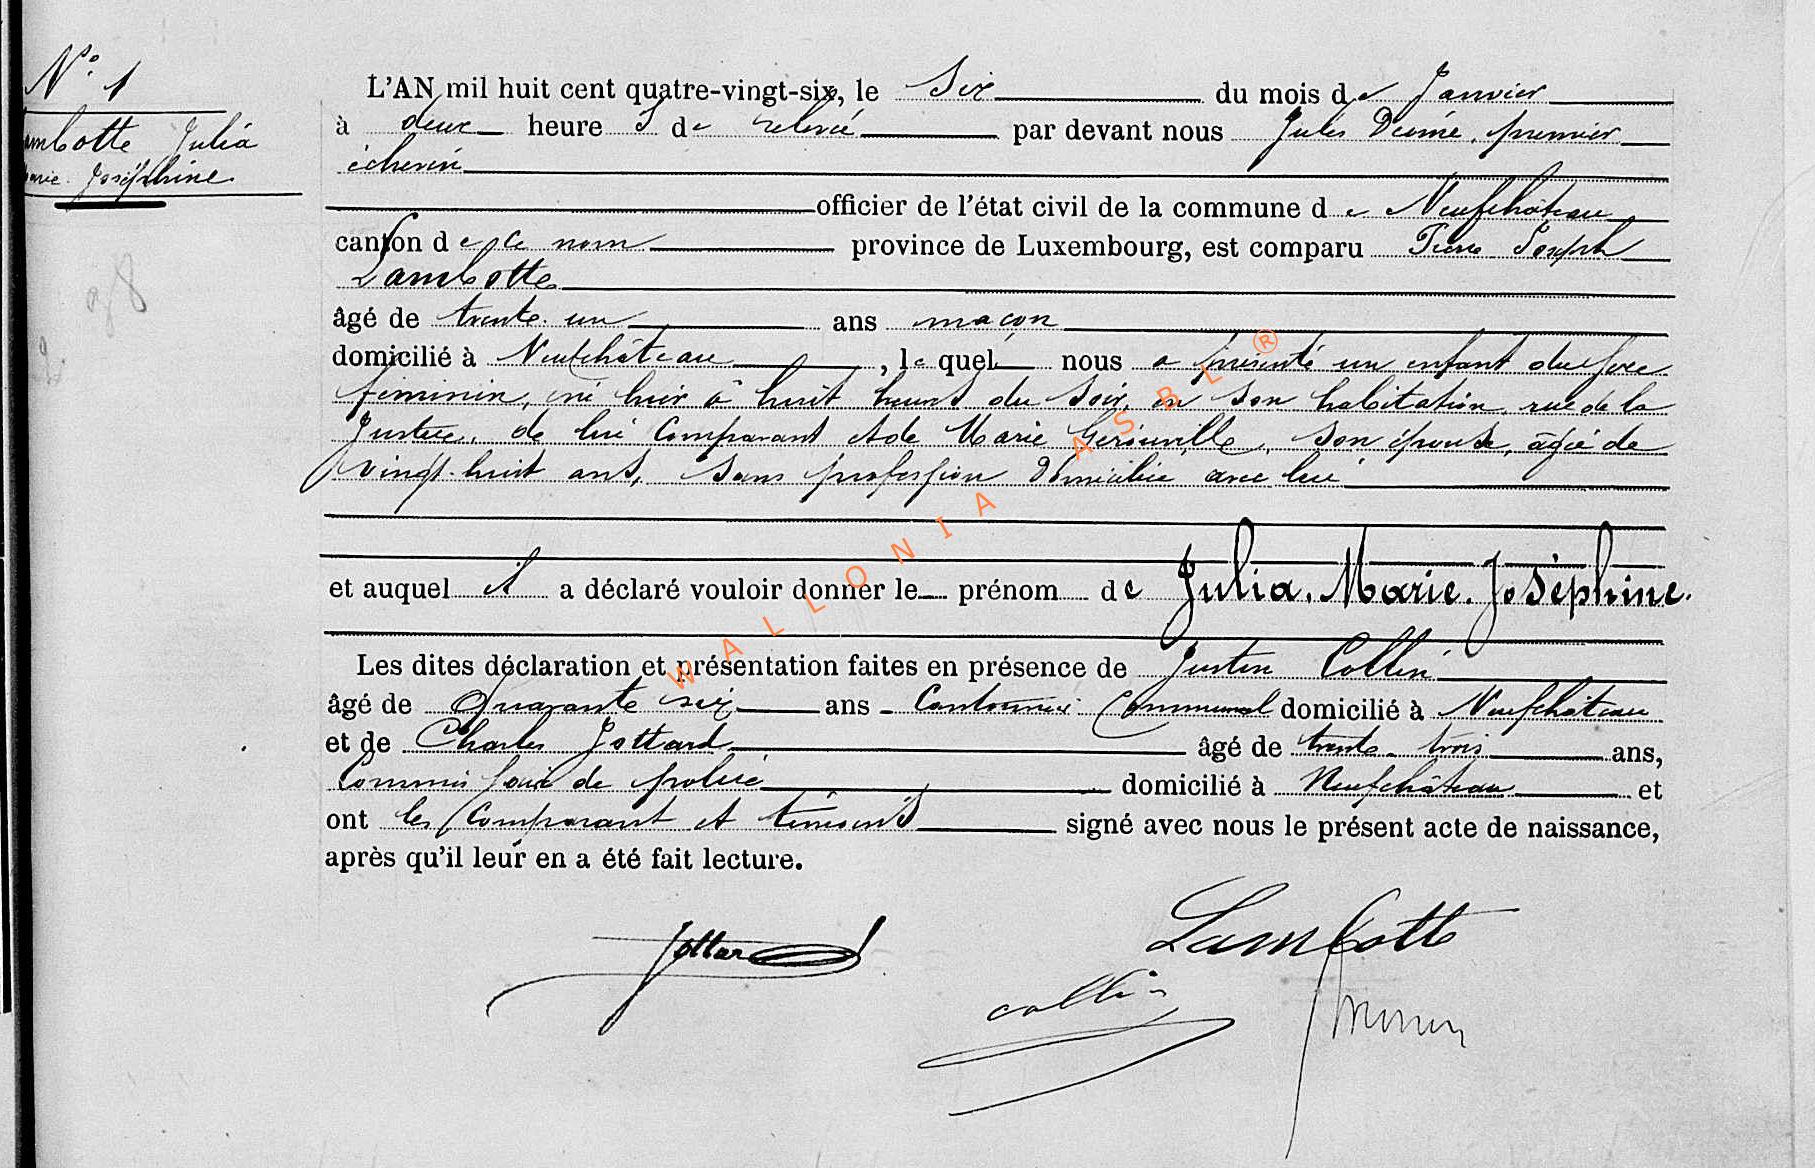 N° 1
Lambotte Julia
Marie Joséphine
L'AN mil huit cent quatre-vingt-six, le six du mois de Janvier
à deux heures de relevée par devant nous Jules premier
échevin
officier de l'état civil de la commune de Neufchâteau
canton de ce nom province de Luxembourg, est comparu Pierre Joseph
Lambotte
âgé de trente-un ans maçon
domicilié à Neufchâteau, lequel nous a présenté un enfant du sexe
féminin, né hier à huit heures du soir, en son habitation, rue de la
Justice, de lui comparant et de Marie Gérouville, son épouse, âgée de
vingt-huit ans, sans profession domiciliée avec lui
et auquel il a déclaré vouloir donner le prénom de Julia. Marie. Joséphine.
Les dites déclaration et présentation faites en présence de Justin Collin
âgé de Quarante six ans Cantonnier Communal domicilié à Neufchâteau
et de Charles Jottard âgé de trente-trois ans,
Commissaire de police domicilié à Neufchâteau et
ont les comparant et témoins signé avec nous le présent acte de naissance,
après qu'il leur en a été fait lecture.
Jottard
Lambotte
Collin
WALLONIA ASBL ®